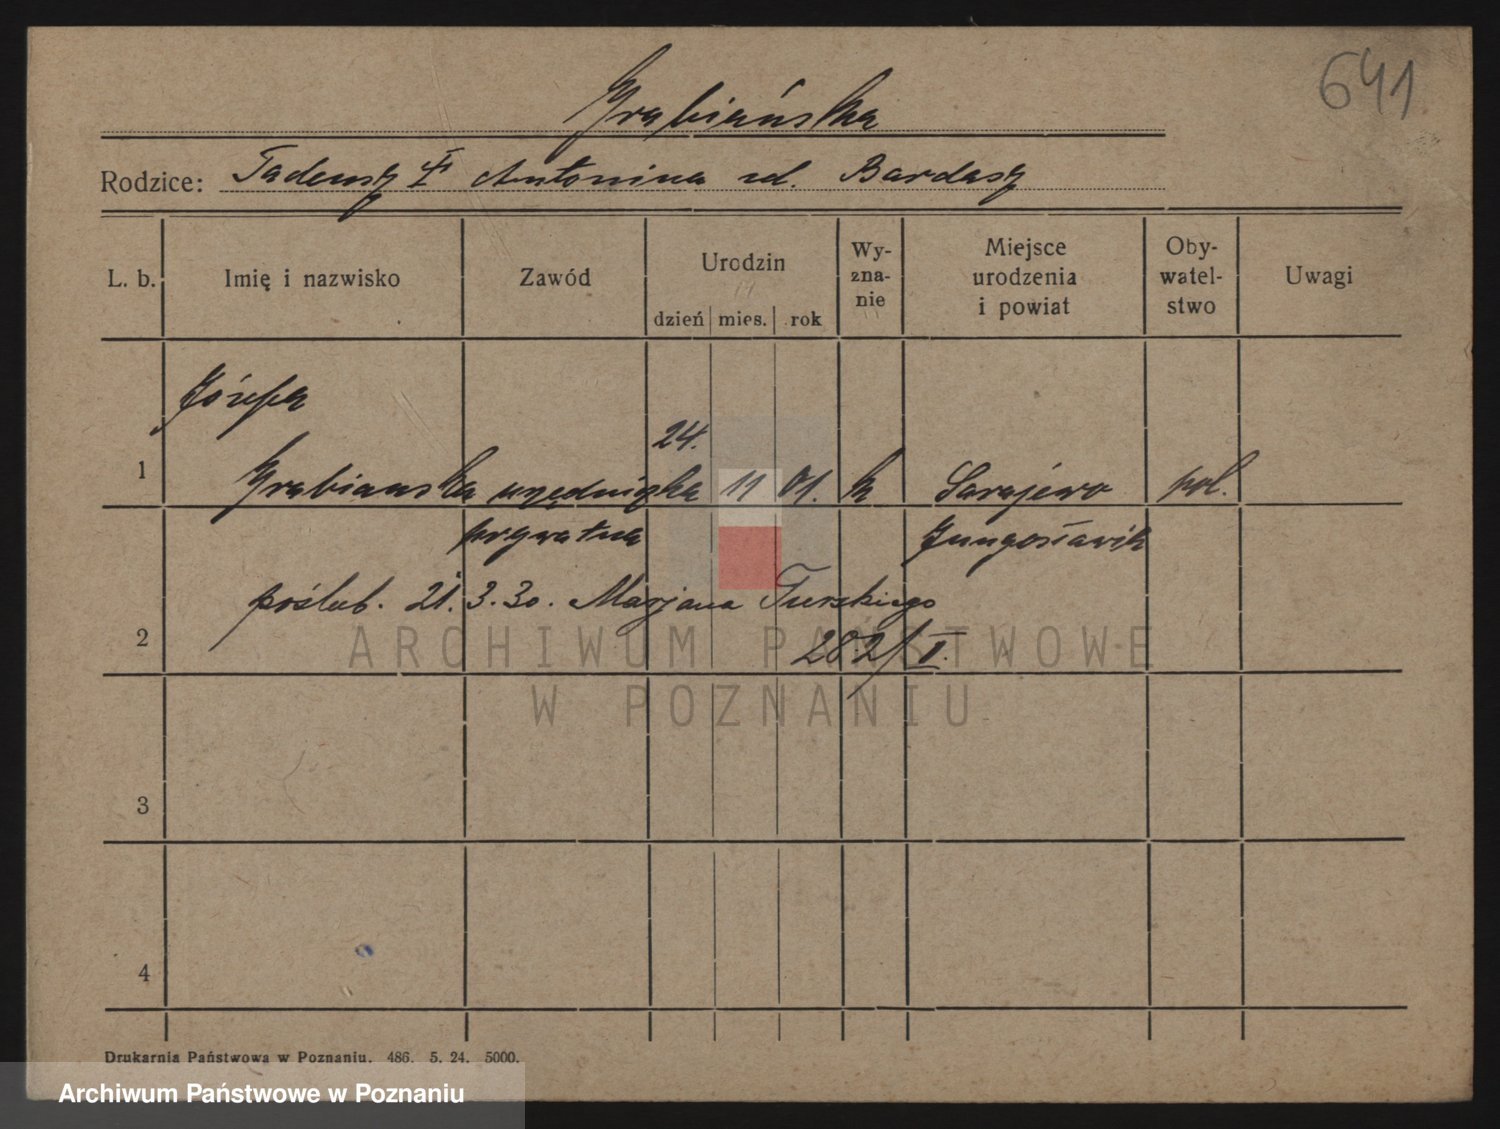 641
Grabiańska
Rodzice: Tadeusz i Antonina zd. Bardasz
L. b. Imię i nazwisko Zawód Urodzin dzień mies. rok Wy-zna-nie Miejsce urodzenia i powiat Oby-watel-stwo Uwagi
Józefa
24.
1 Grabianska urzędniczka 11 01. k Sarajewo pol.
prywatna Jungosławih
poślub. 21. 3. 30. Marjana Turskiego
2 282/I.
ARCHIWUM PAŃSTWOWE
W POZNANIU
3
4
Drukarnia Państwowa w Poznaniu. 486. 5. 24. 5000.
Archiwum Państwowe w Poznaniu